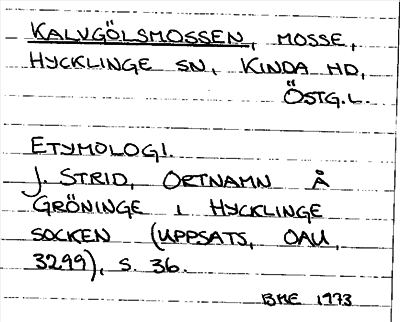 KALVGÖLSMOSSEN, MOSSE,
HYCKLINGE SN, KINDA HD,
ÖSTG.L.
ETYMOLOGI.
J. STRID, ORTNAMN Å
GRÖNINGE I HYCKLINGE
SOCKEN (UPPSATS, OAU,
3299), S. 36.
BME 1973